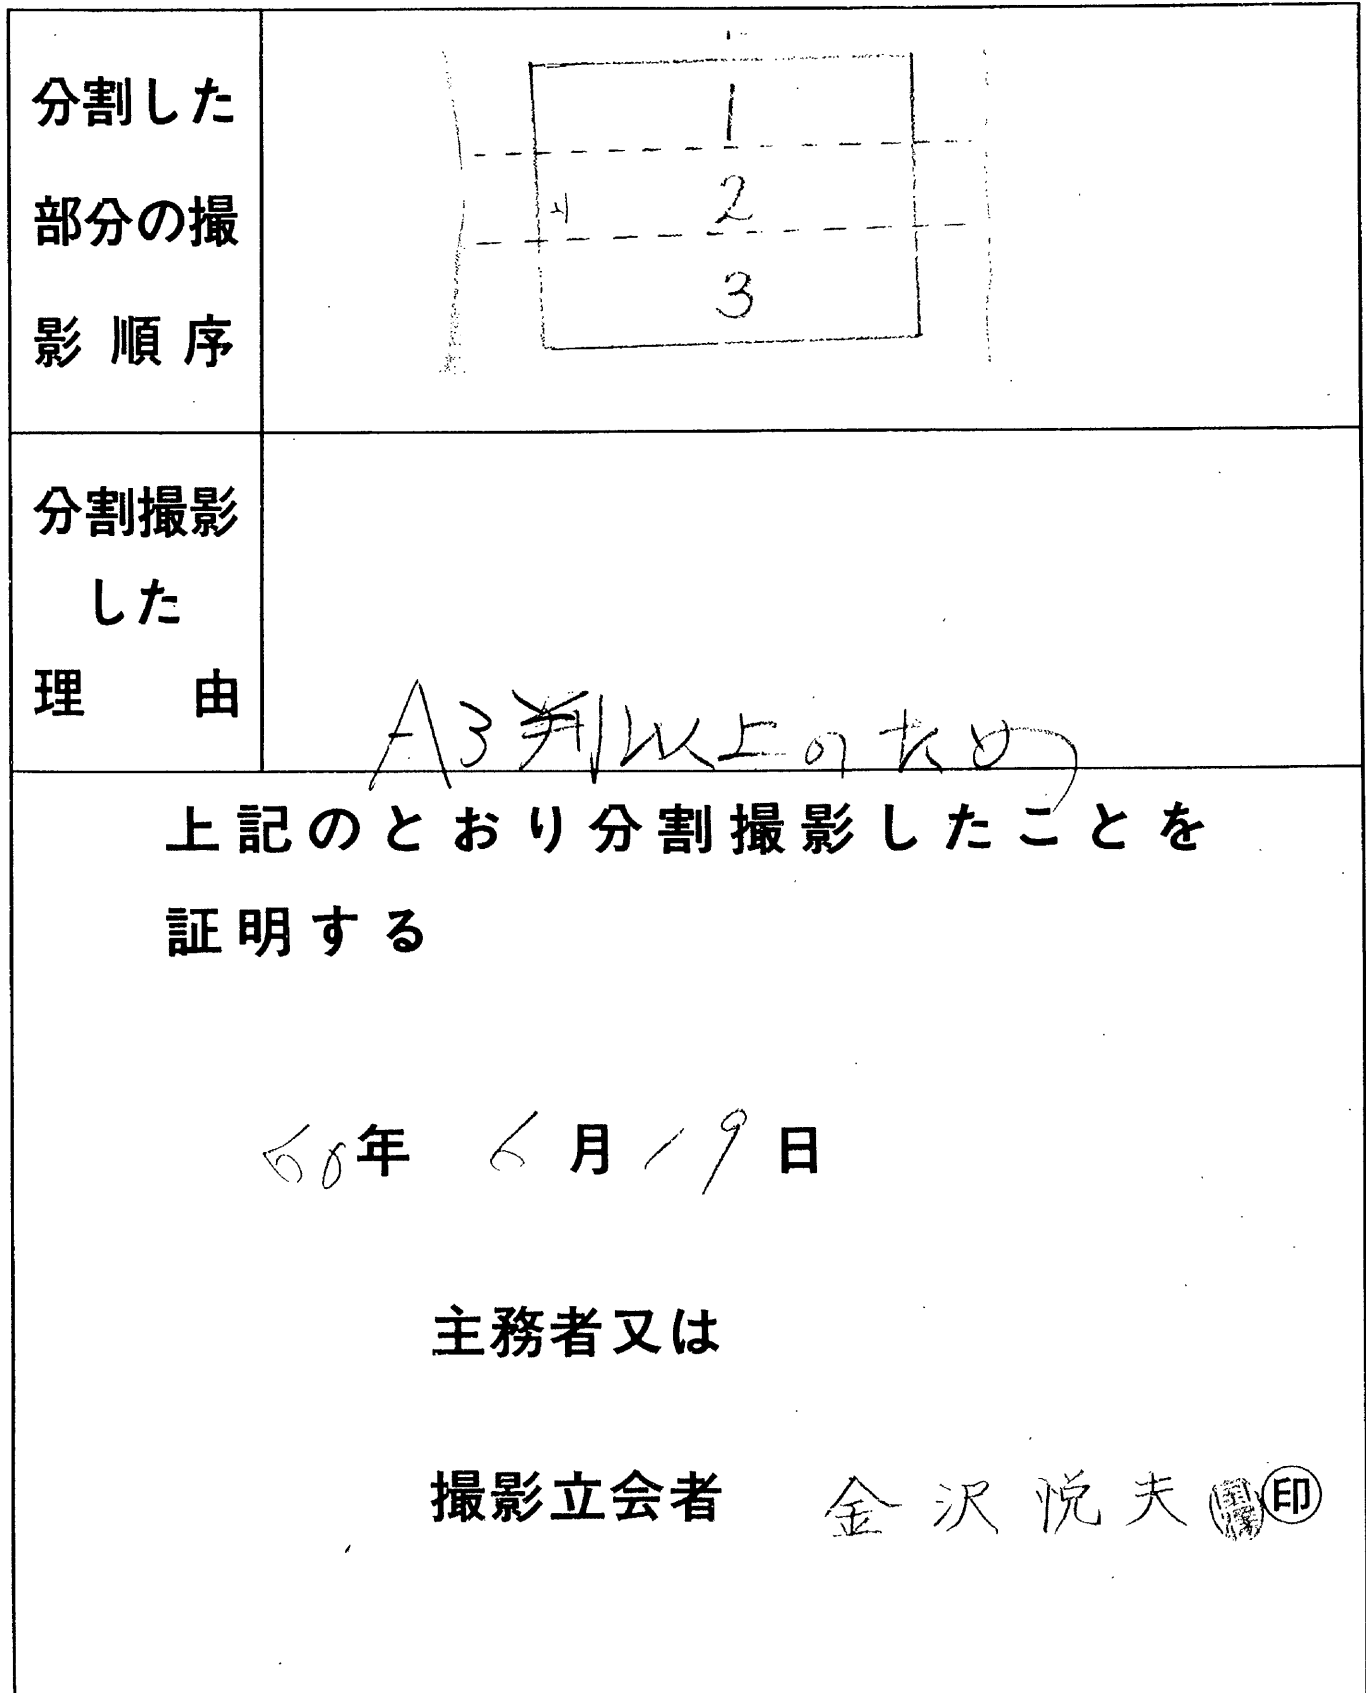 分割した
部分の撮
影順序
1
2
3
分割撮影
した
理由
A3判以上のため
上記のとおり分割撮影したことを
証明する
60年 6月19日
主務者又は
撮影立会者 金沢悦夫 印